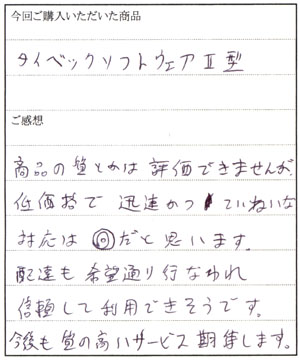 今回ご購入いただいた商品
タイベックソフトウェアⅡ型
ご感想
商品の質とかは評価できませんが、
低価格で迅速かつていねいな
対応は◎だと思います。
配達も希望通り行なわれ
信頼して利用できそうです。
今後も質の高いサービス期待します。